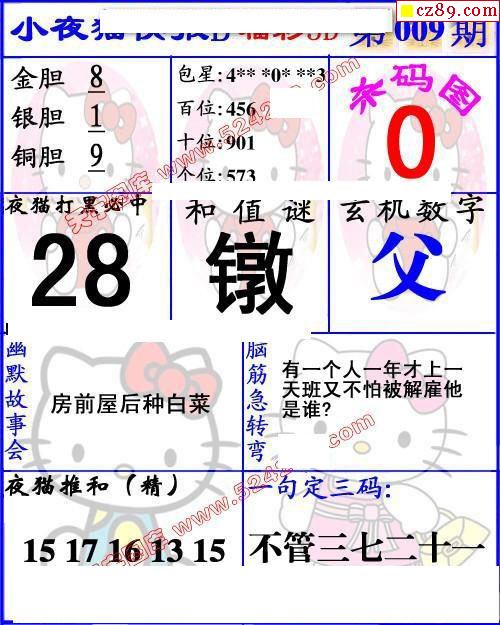 cz89.com
小夜猫快报D 福彩3D 第009期
金胆 8
银胆 1
铜胆 9
包星: 4** *0* **3
百位: 456
十位: 901
个位: 573
杀码图
0
夜猫打黑必中
28
和值谜
镦
玄机数字
父
幽默故事会
房前屋后种白菜
脑筋急转弯
有一个人一年才上一
天班又不怕被解雇他
是谁?
夜猫推和(精)
15 17 16 13 15
一句定三码:
不管三七二十一